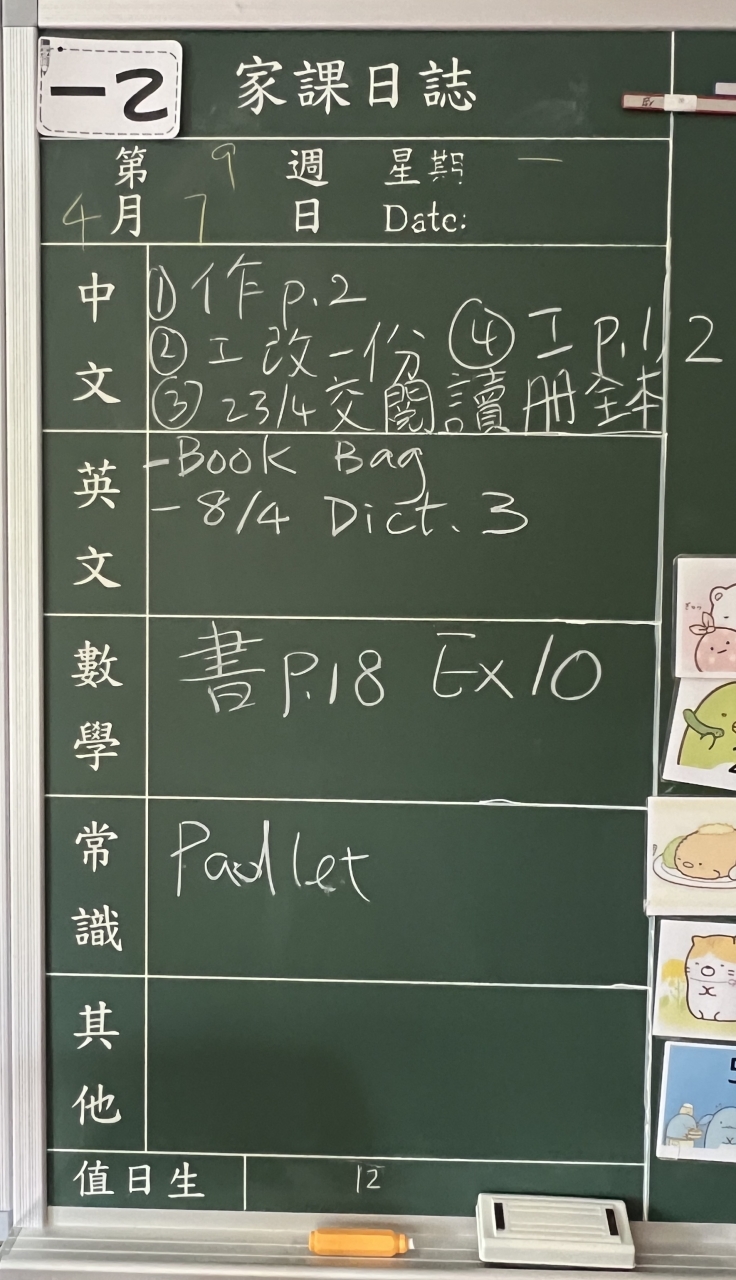 一乙
家課日誌
第 9 週 星期 一
4月 7 日 Date:
中文
① 作 p.2
② 工改一份 ④ 工 p.1, 2
③ 23/4 交閱讀冊全本
英文
- Book Bag
- 8/4 Dict. 3
數學
書 P.18 Ex 10
常識
Padlet
其他
值日生 12